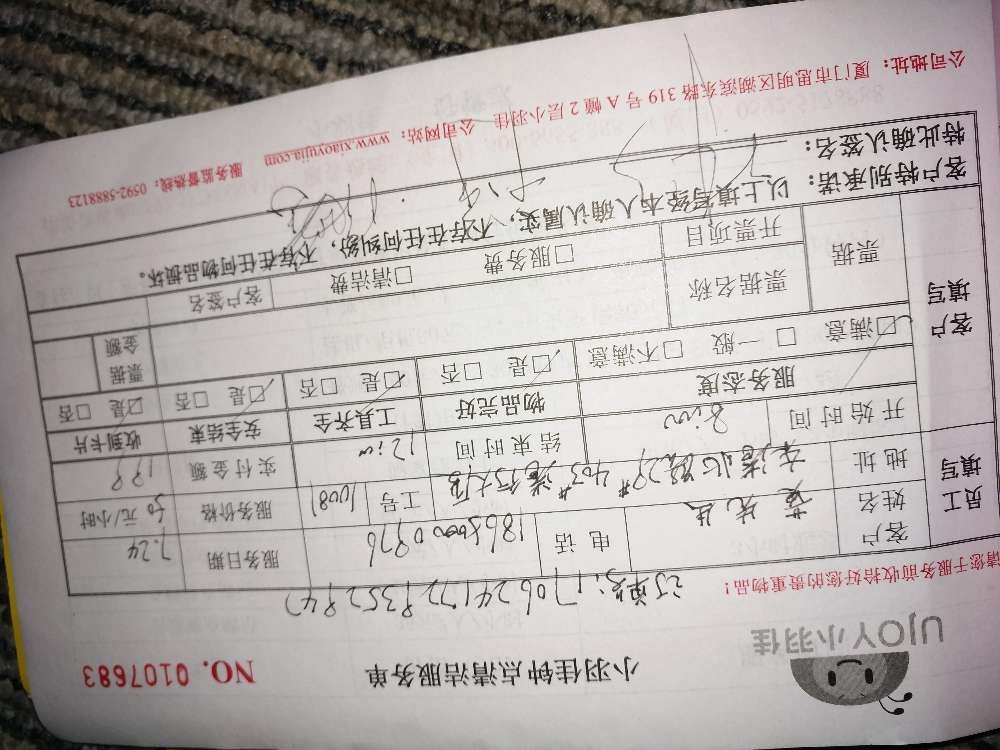 UJOY小羽佳
小羽佳钟点清洁服务单 NO. 0107683
请您于服务前收拾好您的贵重物品!
订单号:170624172835284
员工填写 客户姓名 先生 电话 18650000976 服务日期 7.24
地址 东港北路29# 403# 港行大厦 工号 10081 服务价格 50元/小时
开始时间 8:00 结束时间 12:00 实付金额 199
客户填写 服务态度 物品完好 工具齐全 安全结束 收到卡片
☑满意 □一般 □不满意 ☑是 □否 ☑是 □否 ☑是 □否 ☑是 □否
票据 票据名称 票据金额
开票项目 □服务费 □清洁费 客户签名
客户特别承诺:以上填写经本人确认属实,不存在任何纠纷,不存在任何物品损坏。
特此确认签名:
公司地址:厦门市思明区湖滨东路319号A幢2层小羽佳 公司网站:www.xiaoyujia.com 服务监督热线:0592-5888123